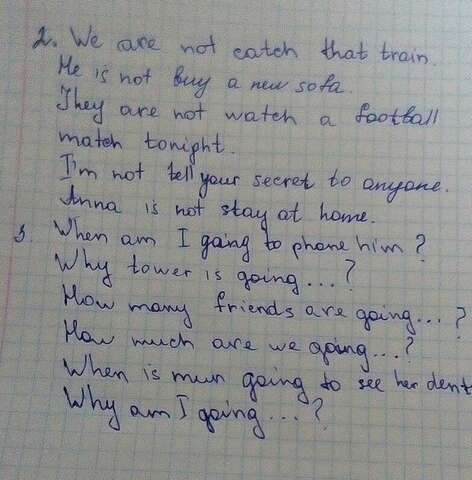 2. We are not catch that train.
He is not buy a new sofa.
They are not watch a football
match tonight.
I'm not tell your secret to anyone.
Anna is not stay at home.
3. When am I going to phone him?
Why tower is going...?
How many friends are going...?
How much are we going...?
When is mum going to see her dent
Why am I going...?